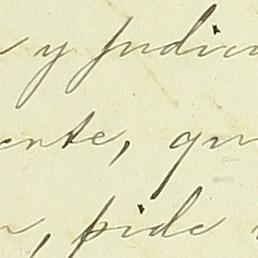 y Judici
ente, qu
, pide